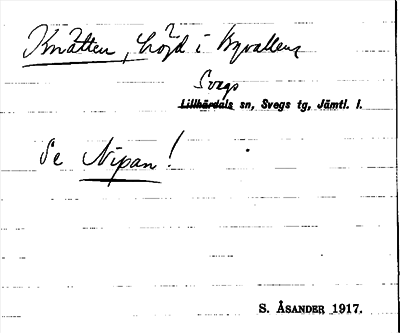 Knätten, höjd i Byvallens
Svegs
Lillhärdals sn, Svegs tg, Jämtl. l.
Se Nipan!
S. ÅSANDER 1917.